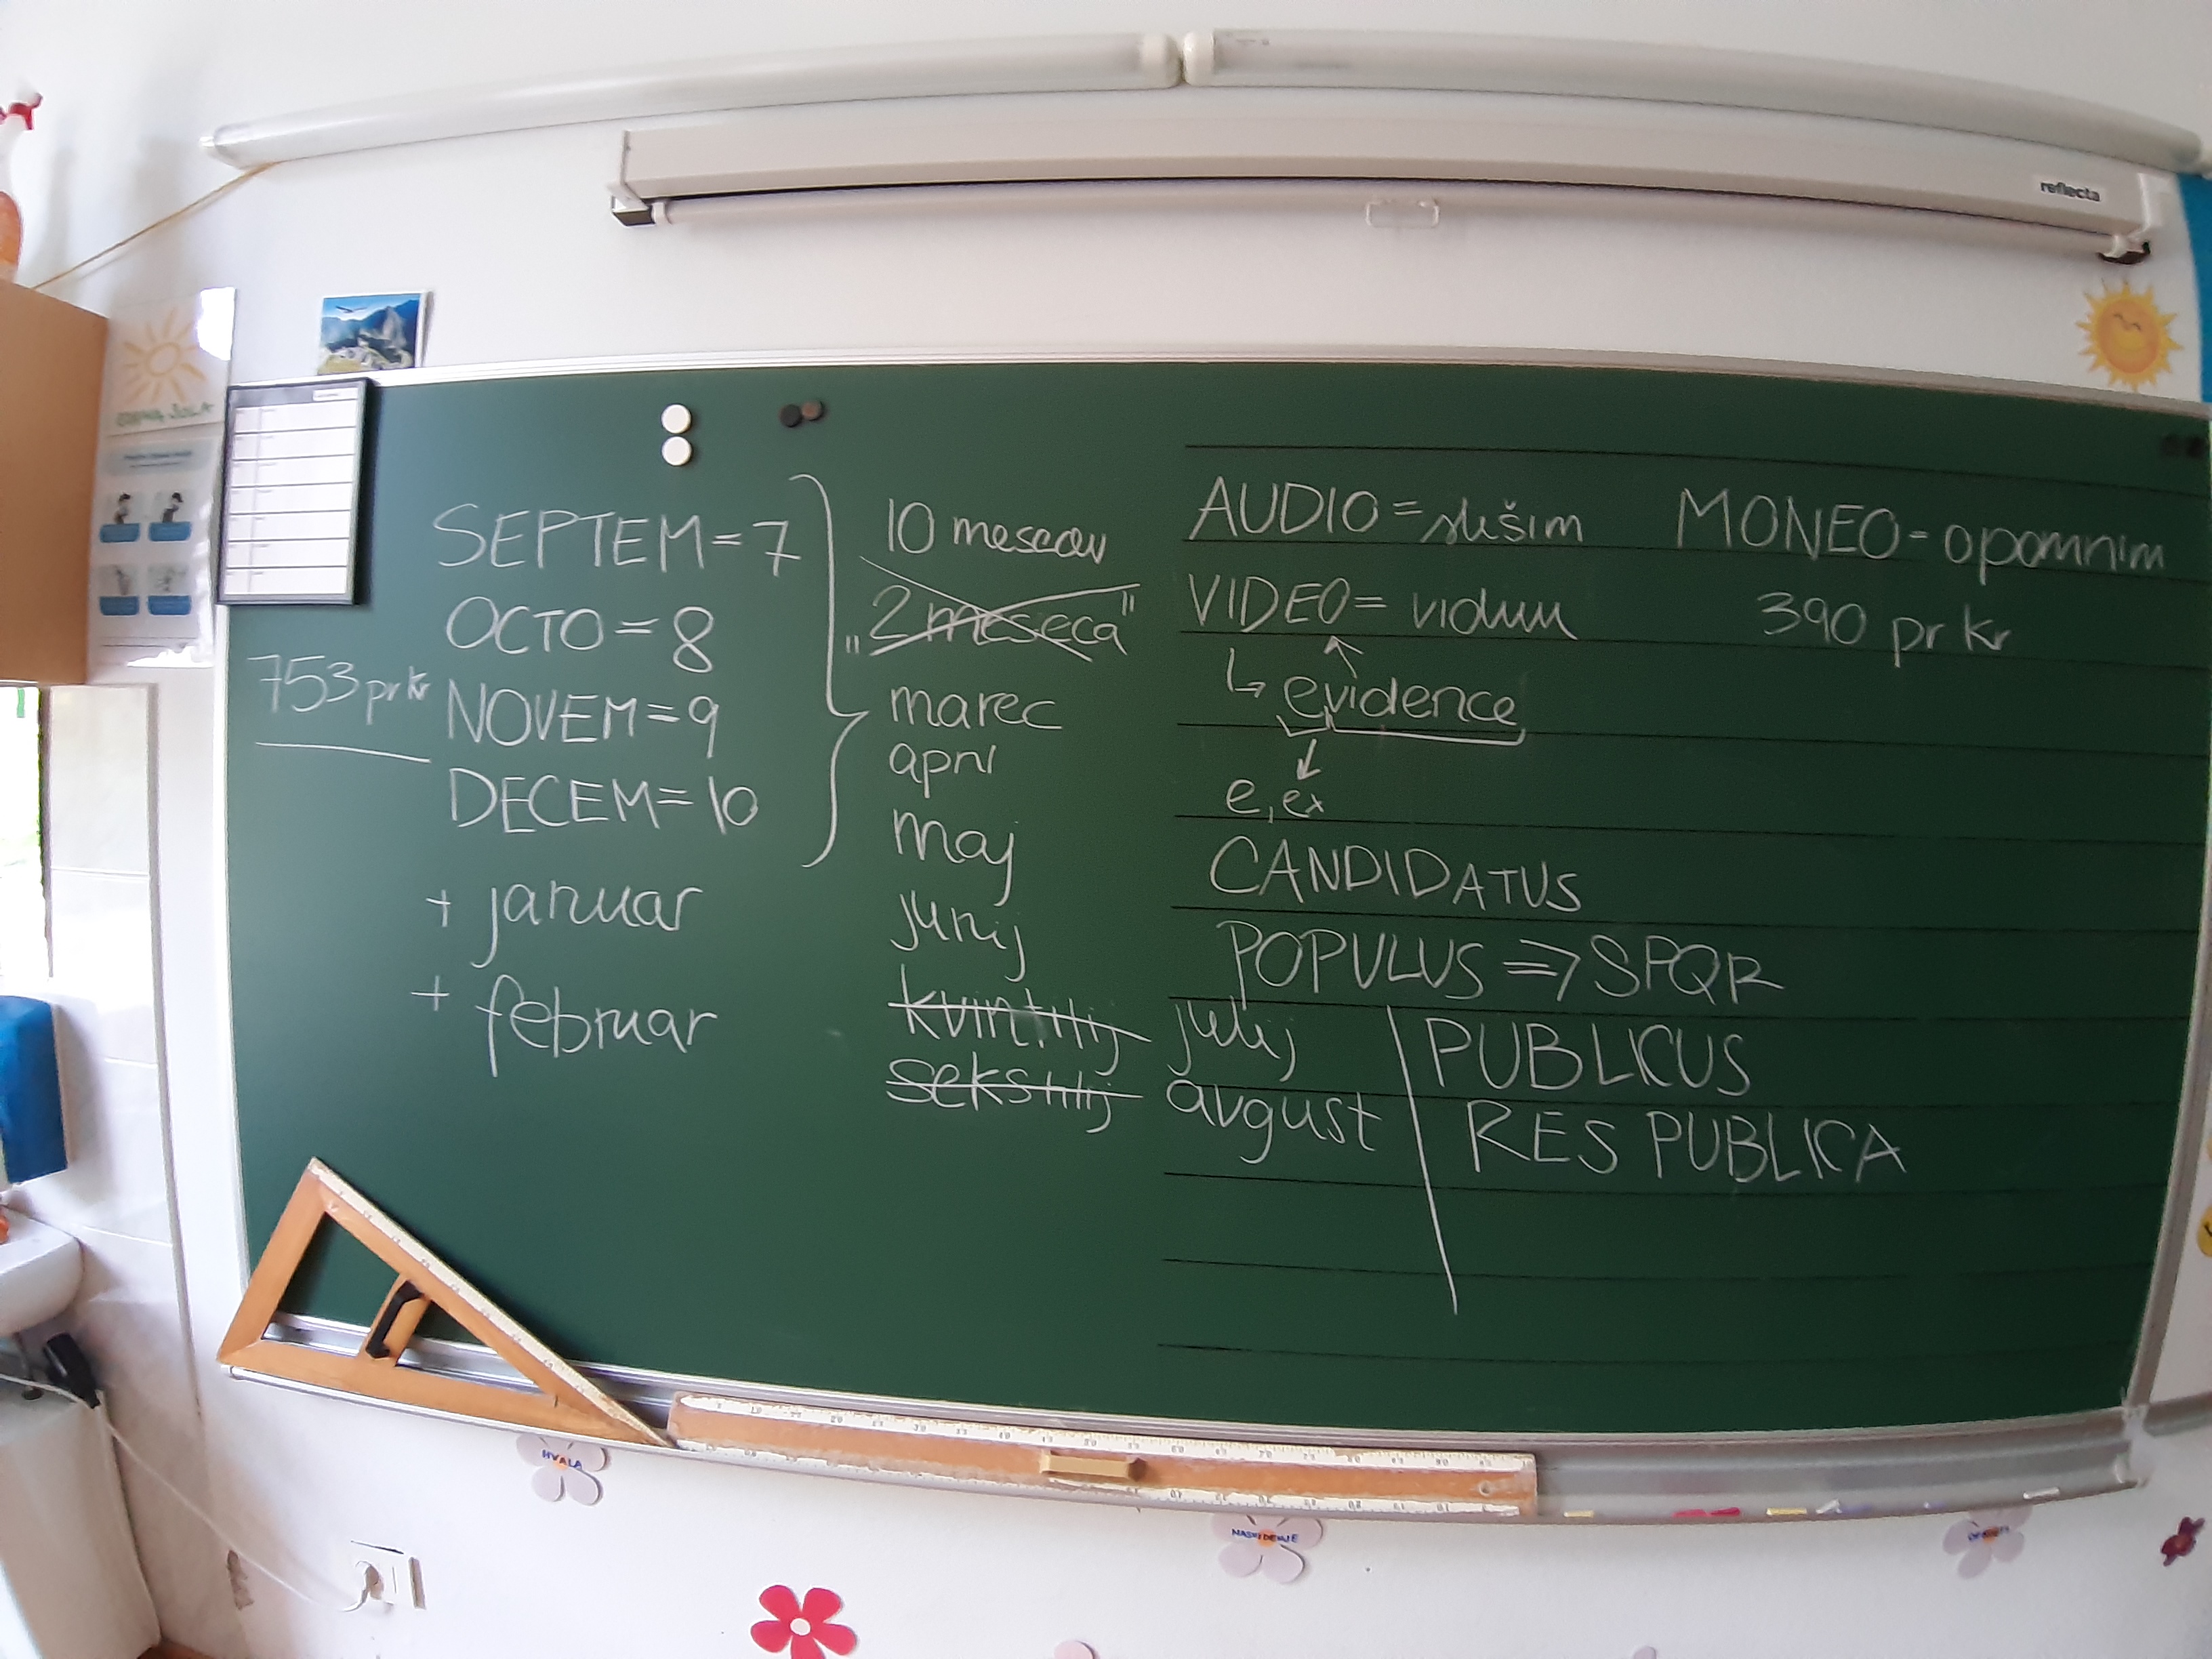 reflecta
SEPTEM=7
OCTO=8
753 pr Kr
NOVEM=9
DECEM=10
+ januar
+ februar
10 mesecev
„2 meseca"
marec
april
maj
junij
kvintilij julij
sekstilij avgust
AUDIO=slišim
VIDEO= vidim
↳ evidence
e, ex
CANDIDATUS
POPULUS ⇒ SPQR
PUBLICUS
RES PUBLICA
MONEO=opomnim
390 pr Kr
HVALA